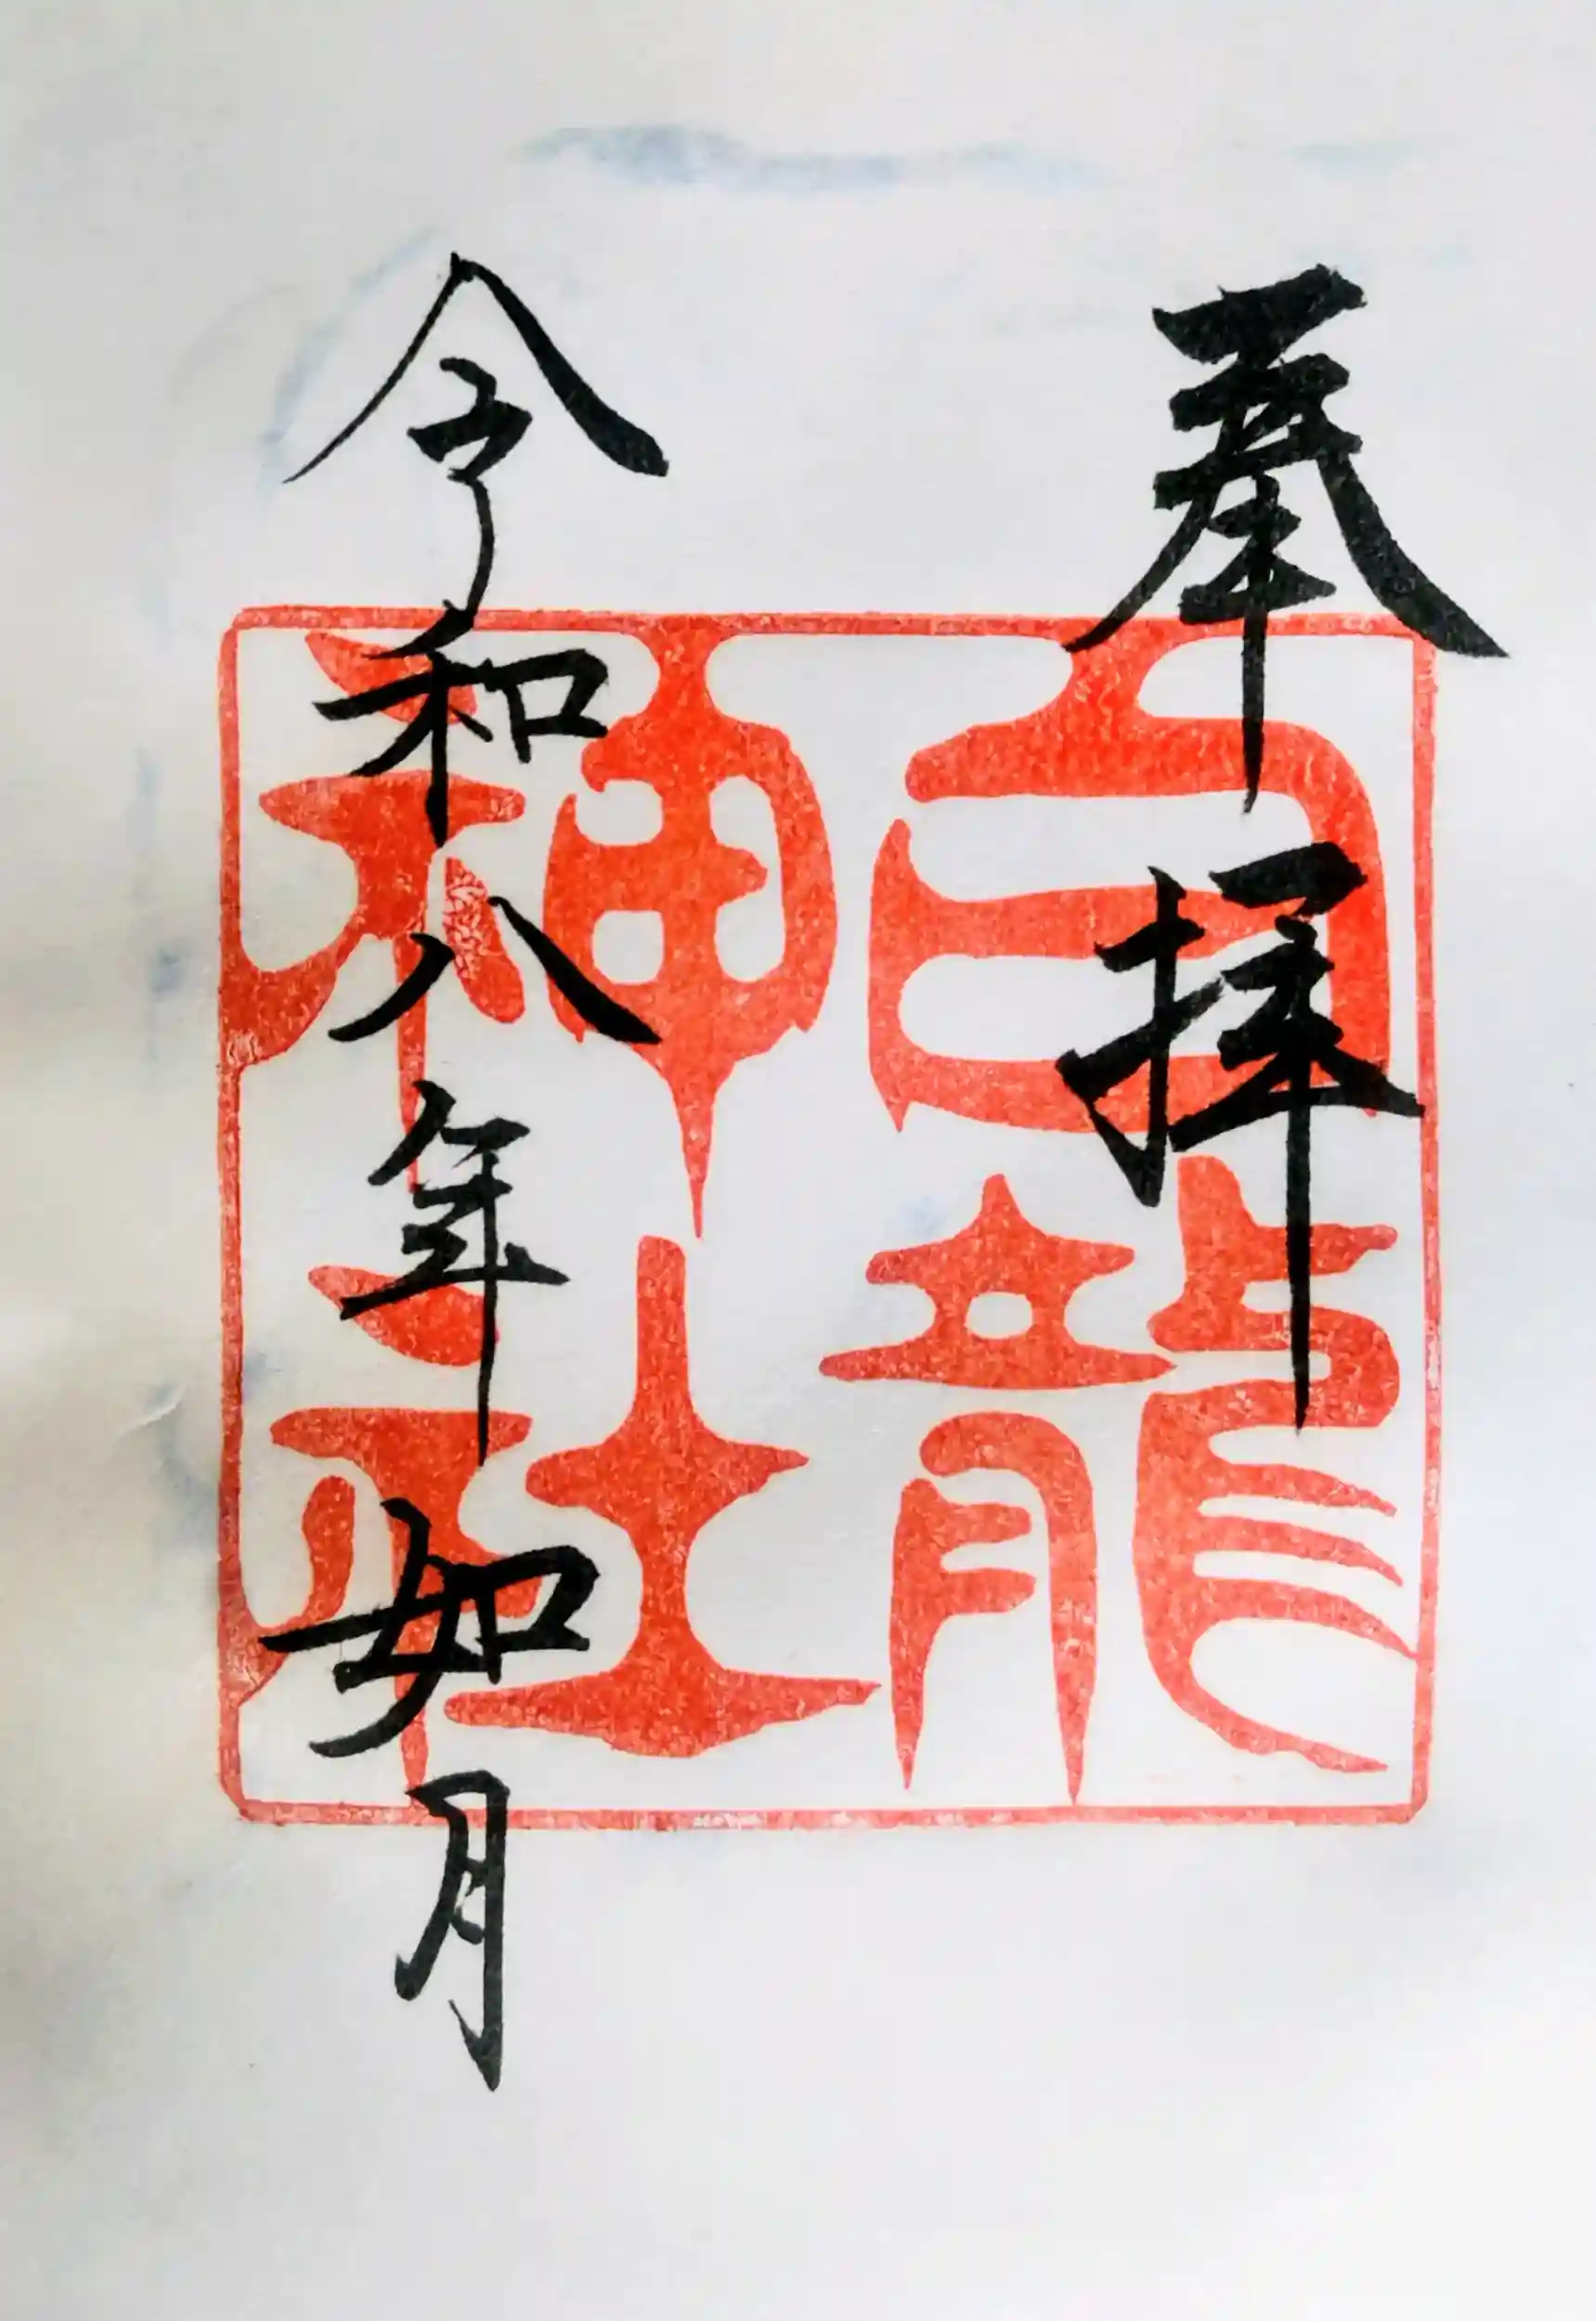 奉拝
白龍
神社
令和八年如月